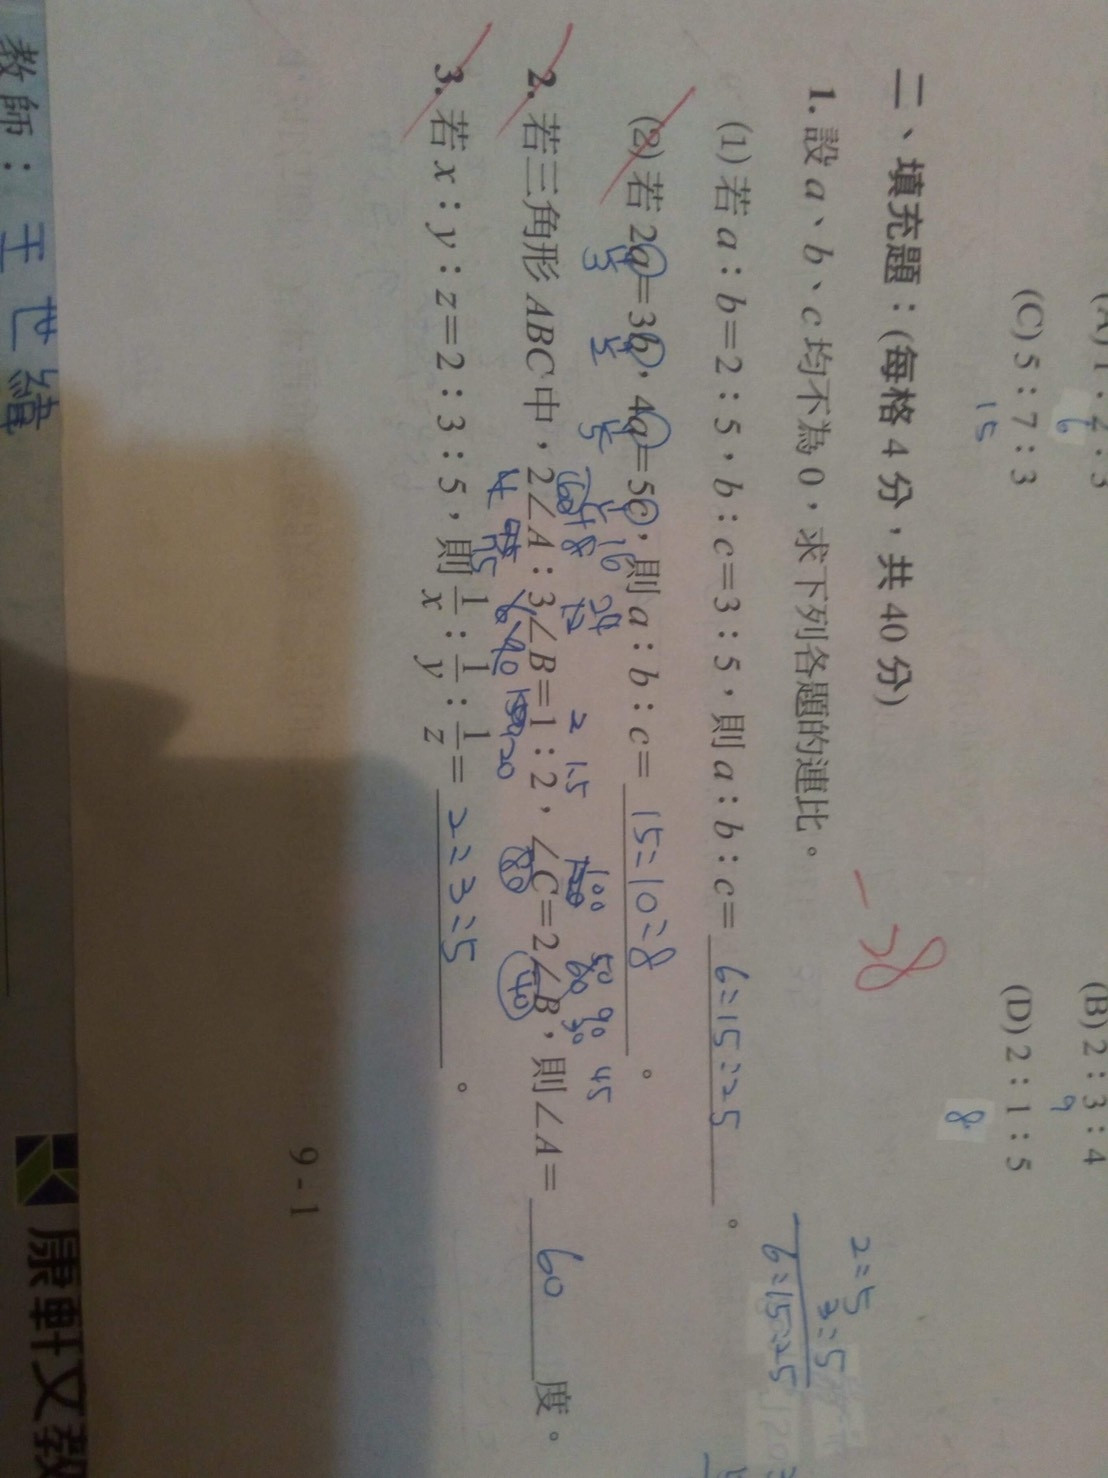 (A) 1：2：3
6
(B) 2：3：4
9
(C) 5：7：3
15
(D) 2：1：5
8
二、填充題：(每格 4 分，共 40 分)
-28
1. 設 a、b、c 均不為 0，求下列各題的連比。
2：5
3：5
6：15：25
(1) 若 a：b＝2：5，b：c＝3：5，則 a：b：c＝ 6：15：25 。
(2) 若 2a＝3b，4a＝5c，則 a：b：c＝ 15：10：8 。
16 24
100 50 90 45
8 12 2 1.5 60 30
2. 若三角形 ABC 中，2∠A：3∠B＝1：2，∠C＝2∠B，則∠A＝ 60 度。
4 6 80 40
3. 若 x：y：z＝2：3：5，則 1/x：1/y：1/z＝ 2：3：5 。
9-1
教師：王世緯
康軒文教